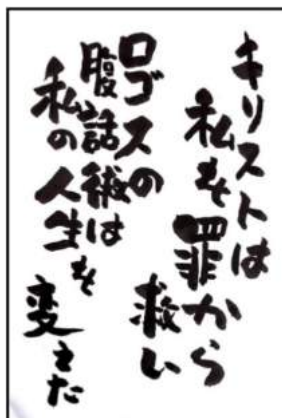 キリストは
私を罪から
救い
ロゴスの
腹話術は
私の人生を
変えた